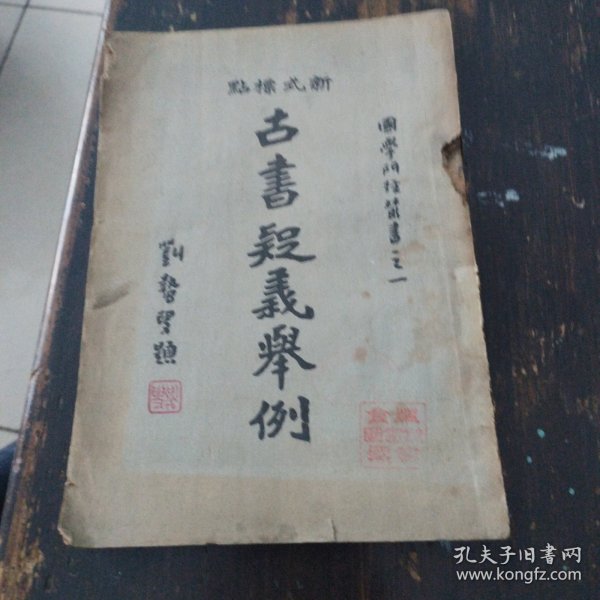 新式標點
國學門徑叢書之一
古書疑義舉例
孔夫子旧書网
www.kongfz.com